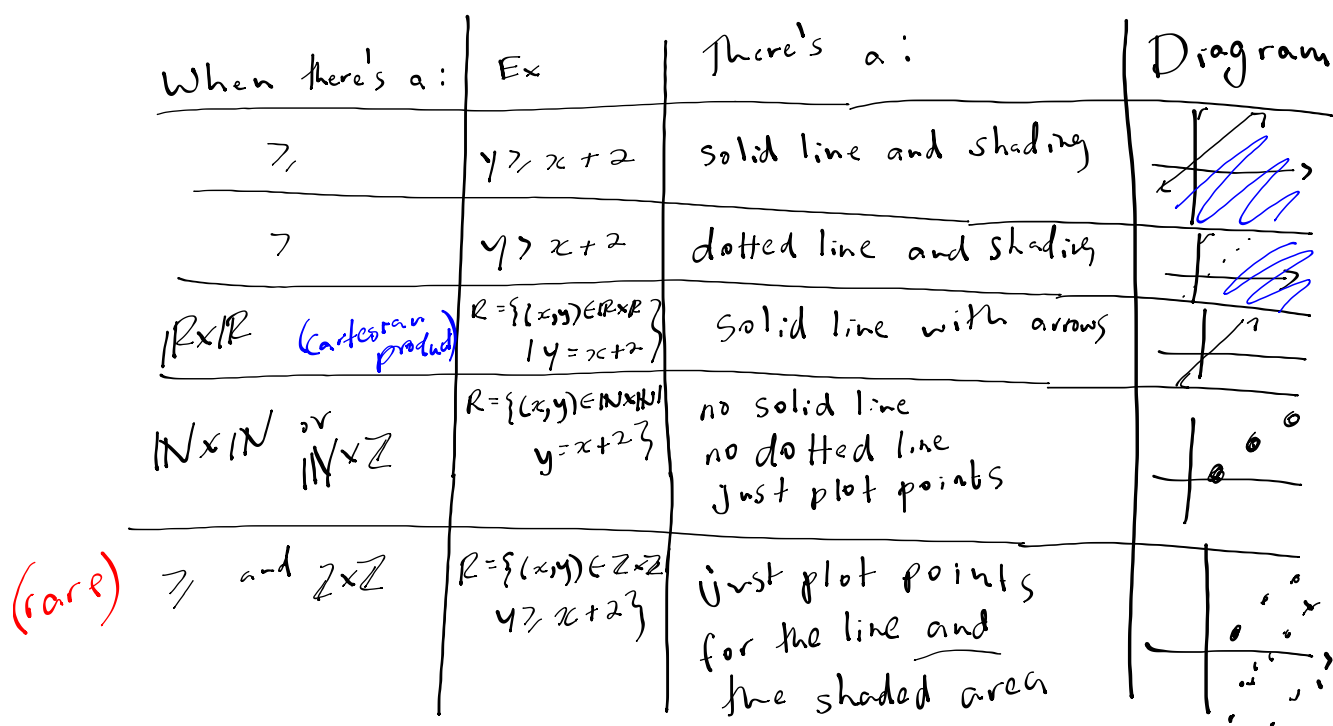 When there's a: Ex There's a: Diagram
⩾ y⩾x+2 solid line and shading
> y>x+2 dotted line and shading
ℝxℝ (Carteoran product) R={(x,y)∈ℝxℝ
| y=x+2} solid line with arrows
ℕxℕ or ℕxℤ R={(x,y)∈ℕxℕ|
y=x+2} no solid line
no dotted line
just plot points
(rare) ⩾ and ℤxℤ R={(x,y)∈ℤxℤ
y⩾x+2} just plot points
for the line and
the shaded area